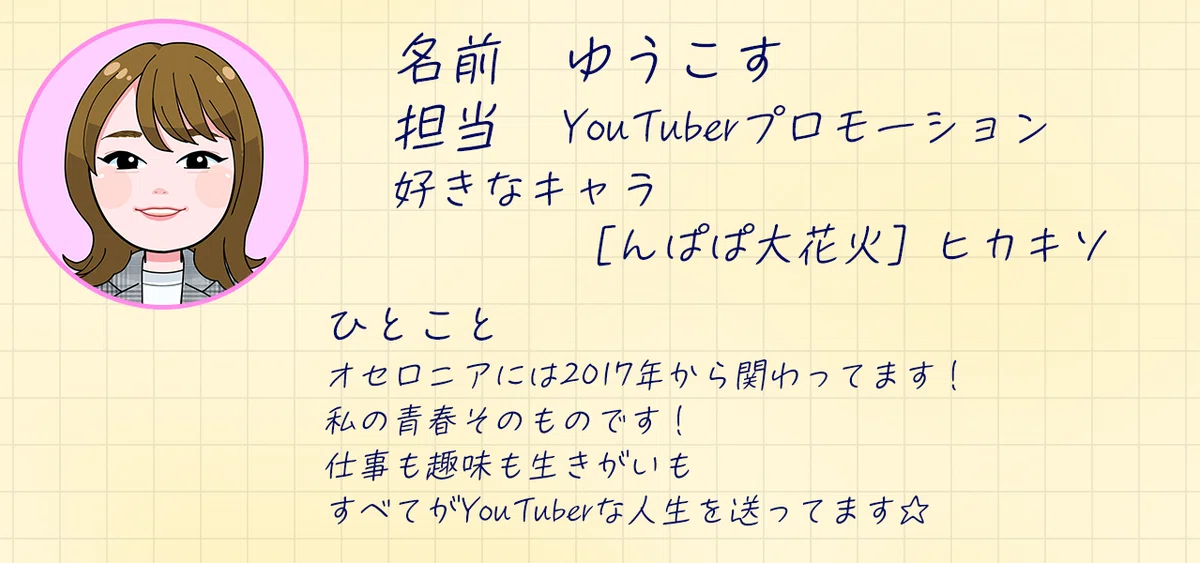 名前　ゆうこす
担当　YouTuberプロモーション
好きなキャラ
［んぱぱ大花火］ヒカキソ
ひとこと
オセロニアには2017年から関わってます！
私の青春そのものです！
仕事も趣味も生きがいも
すべてがYouTuberな人生を送ってます☆